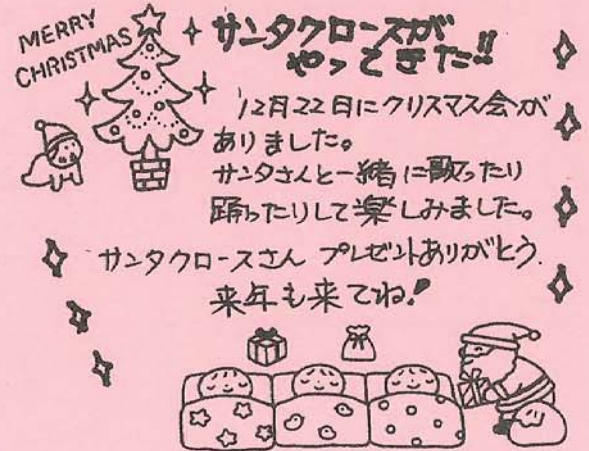 MERRY
CHRISTMAS
サンタクロースが
やってきた!!
12月22日にクリスマス会が
ありました。
サンタさんと一緒に歌ったり
踊ったりして楽しみました。
サンタクロースさん プレゼントありがとう.
来年も来てね!